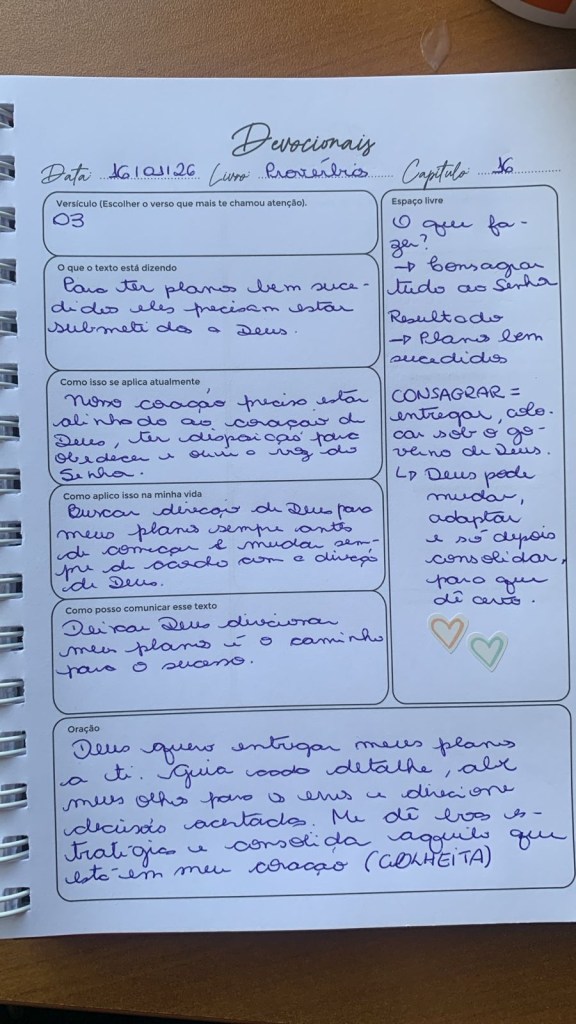 Devocionais
Data 16/01/26 Livro Provérbios Capítulo 16
Versículo (Escolher o verso que mais te chamou atenção).
03
O que o texto está dizendo
Para ter planos bem suce-
didos eles precisam estar
submetidos a Deus.
Como isso se aplica atualmente
Nosso coração precisa estar
alinhado ao coração de
Deus, ter disposição para
obedecer e ouvir a voz do
Senhor.
Como aplico isso na minha vida
Buscar direção de Deus para
meus planos sempre antes
de começar e mudar sem-
pre de acordo com a direção
de Deus.
Como posso comunicar esse texto
Deixar Deus direcionar
meus planos é o caminho
para o sucesso.
Espaço livre
O que fa-
zer?
→ Consagrar
tudo ao Senhor
Resultado
→ Planos bem
sucedidos
CONSAGRAR =
entregar, colo-
car sob o go-
verno de Deus.
↳ Deus pode
mudar,
adaptar
e só depois
consolidar,
para que
dê certo.
Oração
Deus quero entregar meus planos
a ti. Guia cada detalhe, abre
meus olhos para os erros e direcione
decisões acertadas. Me dê boas es-
tratégias e consolida aquilo que
está em meu coração (COLHEITA)